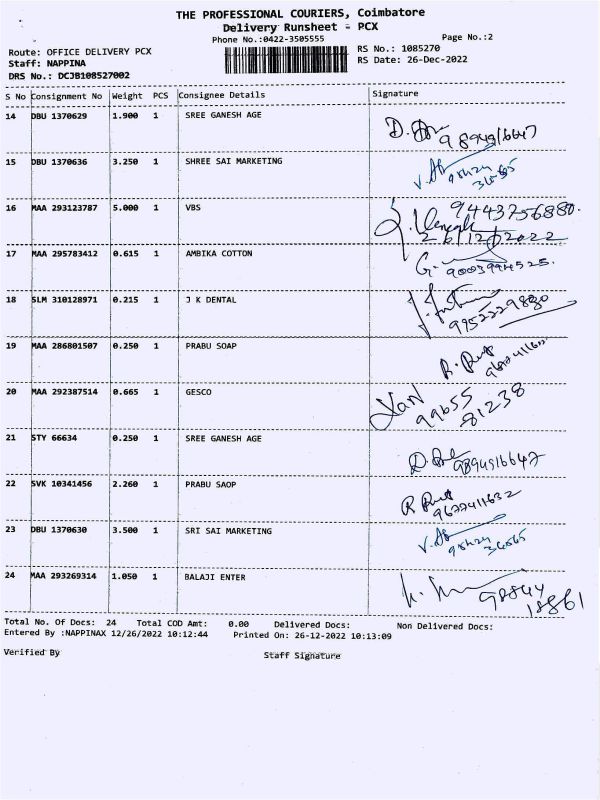 THE PROFESSIONAL COURIERS, Coimbatore
Delivery Runsheet - PCX
Phone No.:0422-3505555
Page No.:2
Route: OFFICE DELIVERY PCX
RS No.: 1085270
Staff: NAPPINA
RS Date: 26-Dec-2022
DRS No.: DCJB108527002
S No Consignment No Weight PCS Consignee Details Signature
14 DBU 1370629 1.900 1 SREE GANESH AGE
9894916647
15 DBU 1370636 3.250 1 SHREE SAI MARKETING
16 MAA 293123787 5.000 1 VBS
9443756880.
26/12/2022
17 MAA 295783412 0.615 1 AMBIKA COTTON
18 SLM 310128971 0.215 1 J K DENTAL
9952229880
19 MAA 286801507 0.250 1 PRABU SOAP
20 MAA 292387514 0.665 1 GESCO
99655
81238
21 STY 66634 0.250 1 SREE GANESH AGE
9894916647
22 SVK 10341456 2.260 1 PRABU SAOP
9677411632
23 DBU 1370630 3.500 1 SRI SAI MARKETING
24 MAA 293269314 1.050 1 BALAJI ENTER
98844
18861
Total No. Of Docs: 24 Total COD Amt: 0.00 Delivered Docs: Non Delivered Docs:
Entered By :NAPPINAX 12/26/2022 10:12:44 Printed On: 26-12-2022 10:13:09
Verified By
Staff Signature